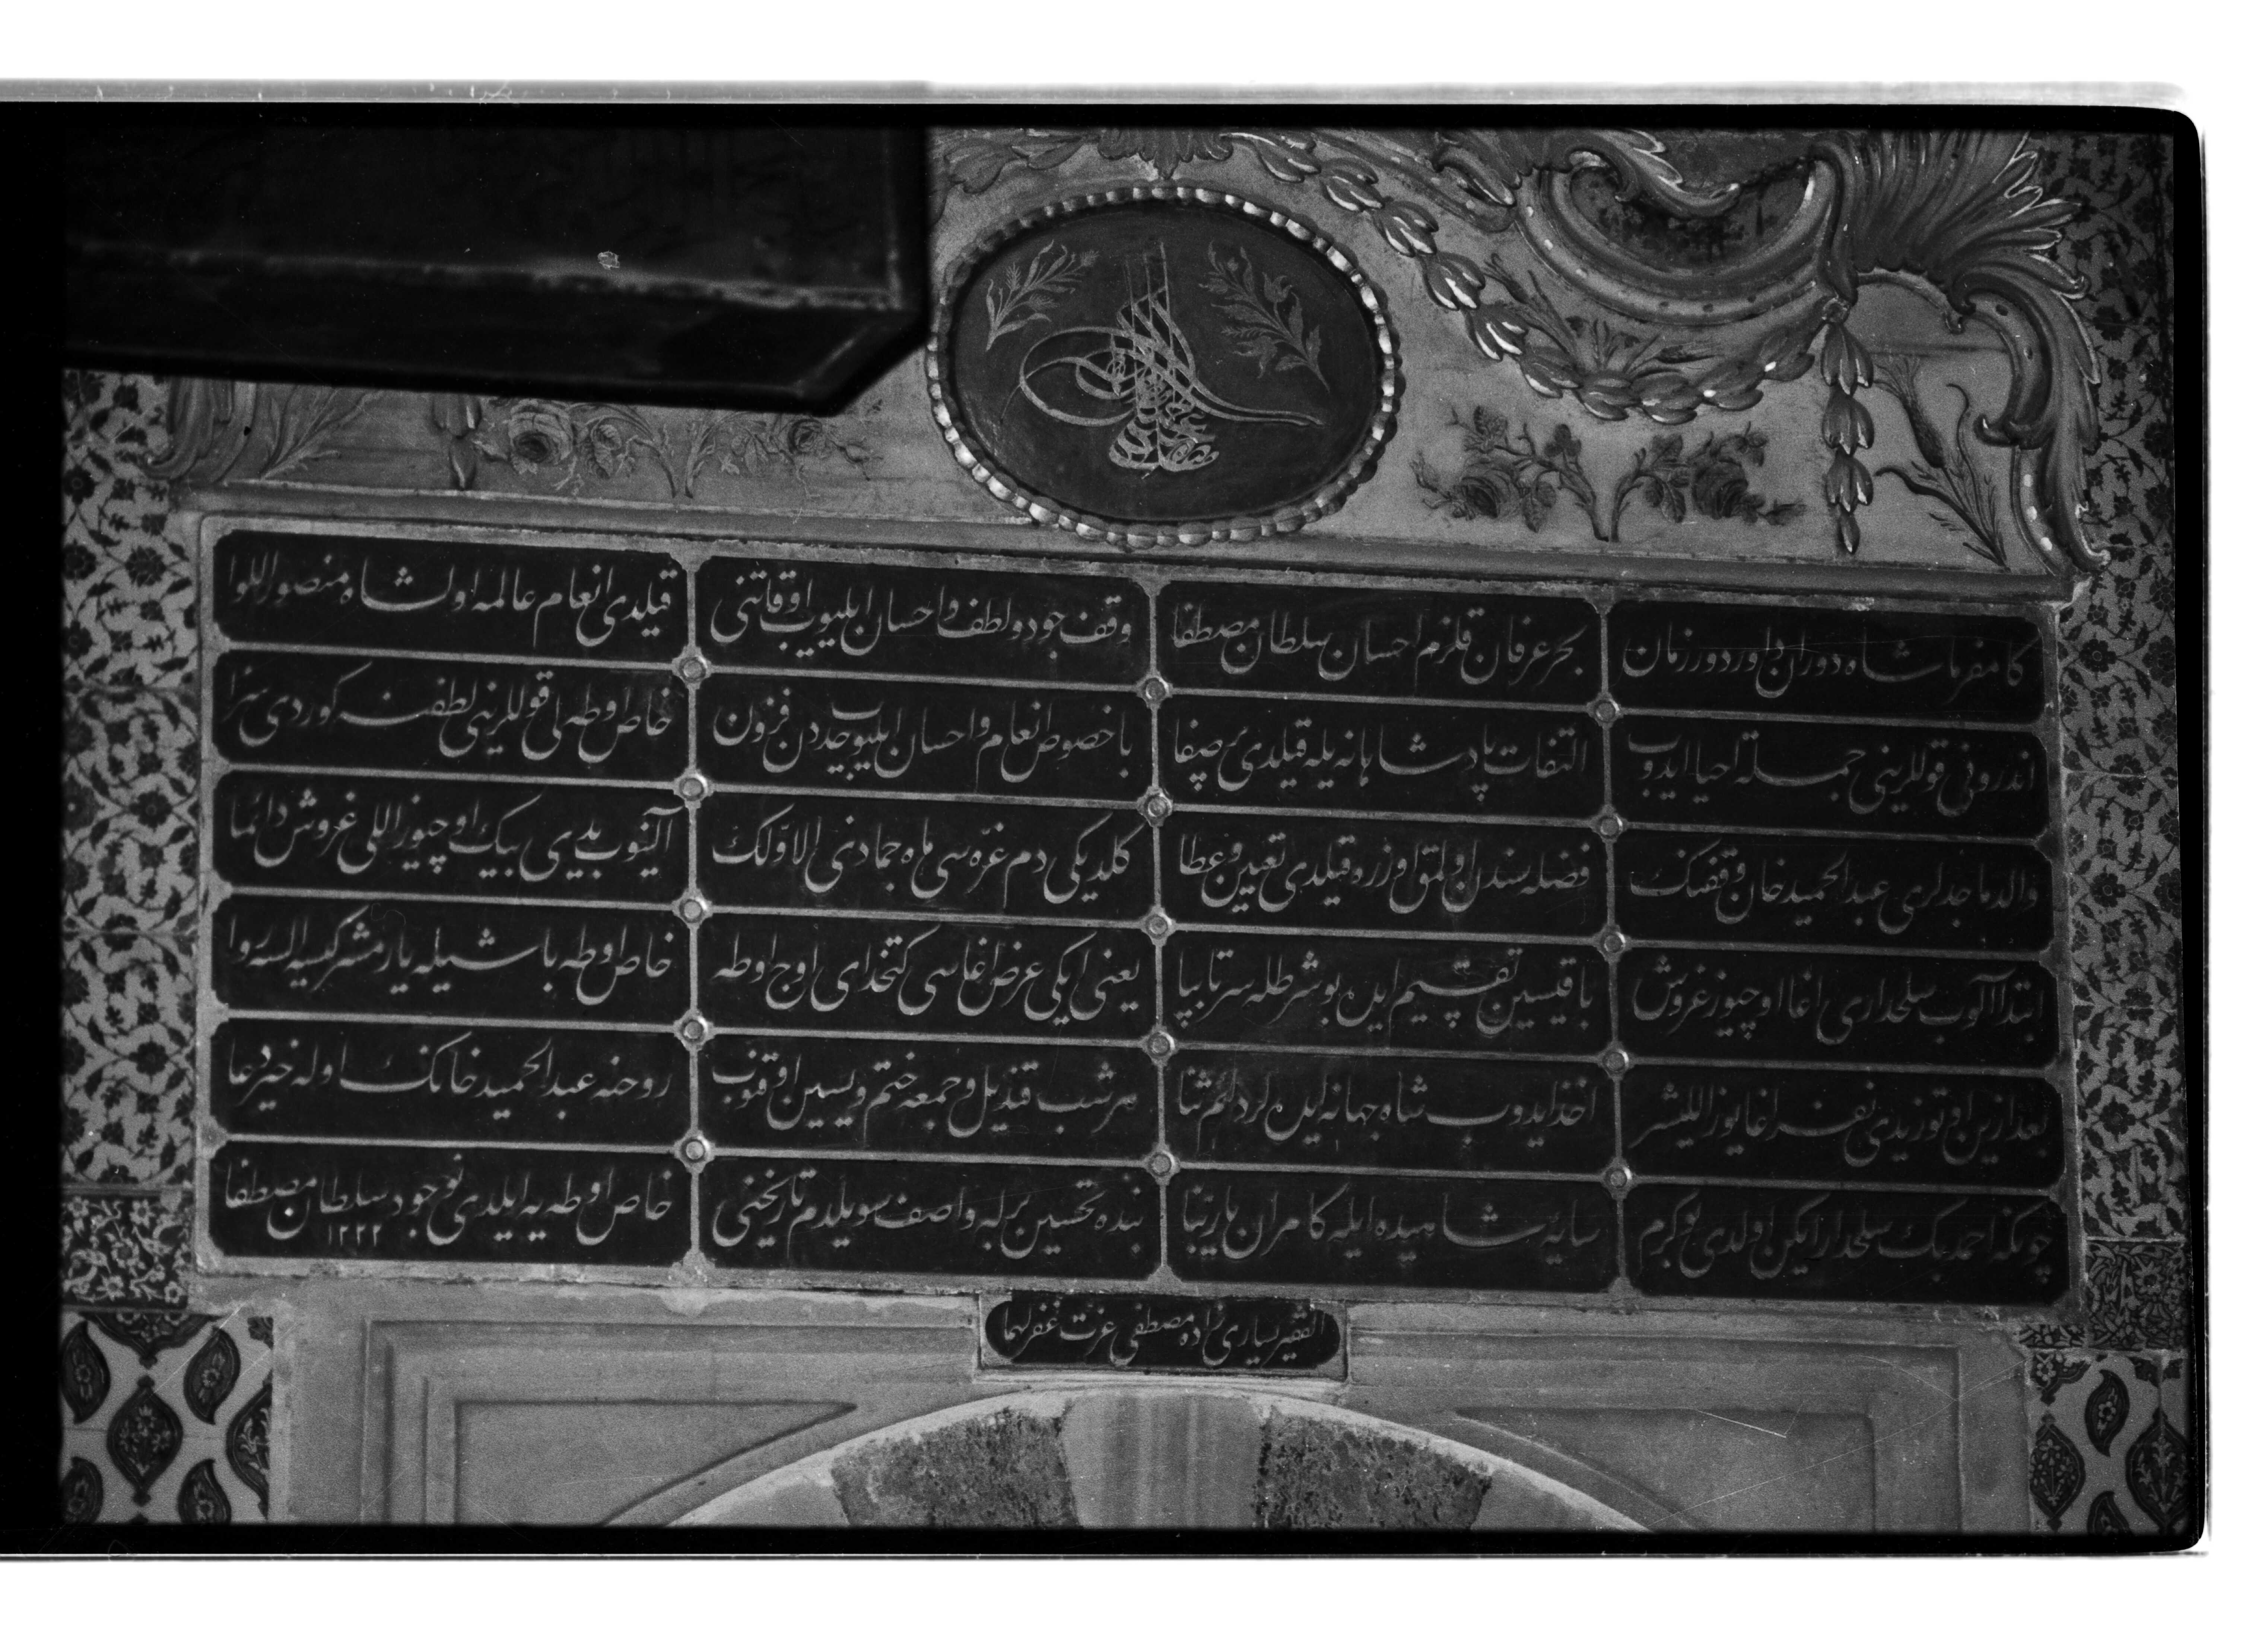 كامفرما شاه دوران داور دور زمان
بحر عرفان قلزم احسان سلطان مصطفا
وقف جود و لطف و احسان ايليوب اوقاتنى
قيلدى انعام عالمه اول شاه منصور اللوا
اندرونى قوللرينى جمله احيا ايدوب
التفات پادشاهانه يله قيلدى پر صفا
باخصوص انعام و احسان ايليوب حددن فزون
خاص اوطه لى قوللرينى لطفنه كوردى سزا
والد ماجدلرى عبد الحميد خان وقفنك
فضله سندن اولمق اوزره قيلدى تعيين و عطا
كلديكى دم غره سى ماه جمادى الاولك
آلنوب يدى بيك اوچيوز اللى غروش دائما
ابتدا آلوب سلحدارى اغا اوچيوز غروش
باقيسين تقسيم ايده بو شرطله سرتابپا
يعنى ايكى عرض اغاسى كتخداى اوج اوطه
خاص اوطه باشيله يارمشر كيسه السه روا
بعد ازين اوتوز يدى نفر اغا يوز اللیشر
اخذ ايدوب شاه جهانه ايده لر دائم ثنا
هر شب قنديل و جمعه ختم و يسين اوقنوب
روحنه عبد الحميد خانك اوله خير دعا
چونكه احمد بك سلحدار ايكن اولدى بو كرم
سايه شاهيده ايله كامران يا ربنا
بنده تحسين برله واصف سويلدم تاريخنى
خاص اوطه يه ايلدى نو جود سلطان مصطفا
١٢٢٢
الفقير يسارى زاده مصطفى عزت غفر لهما